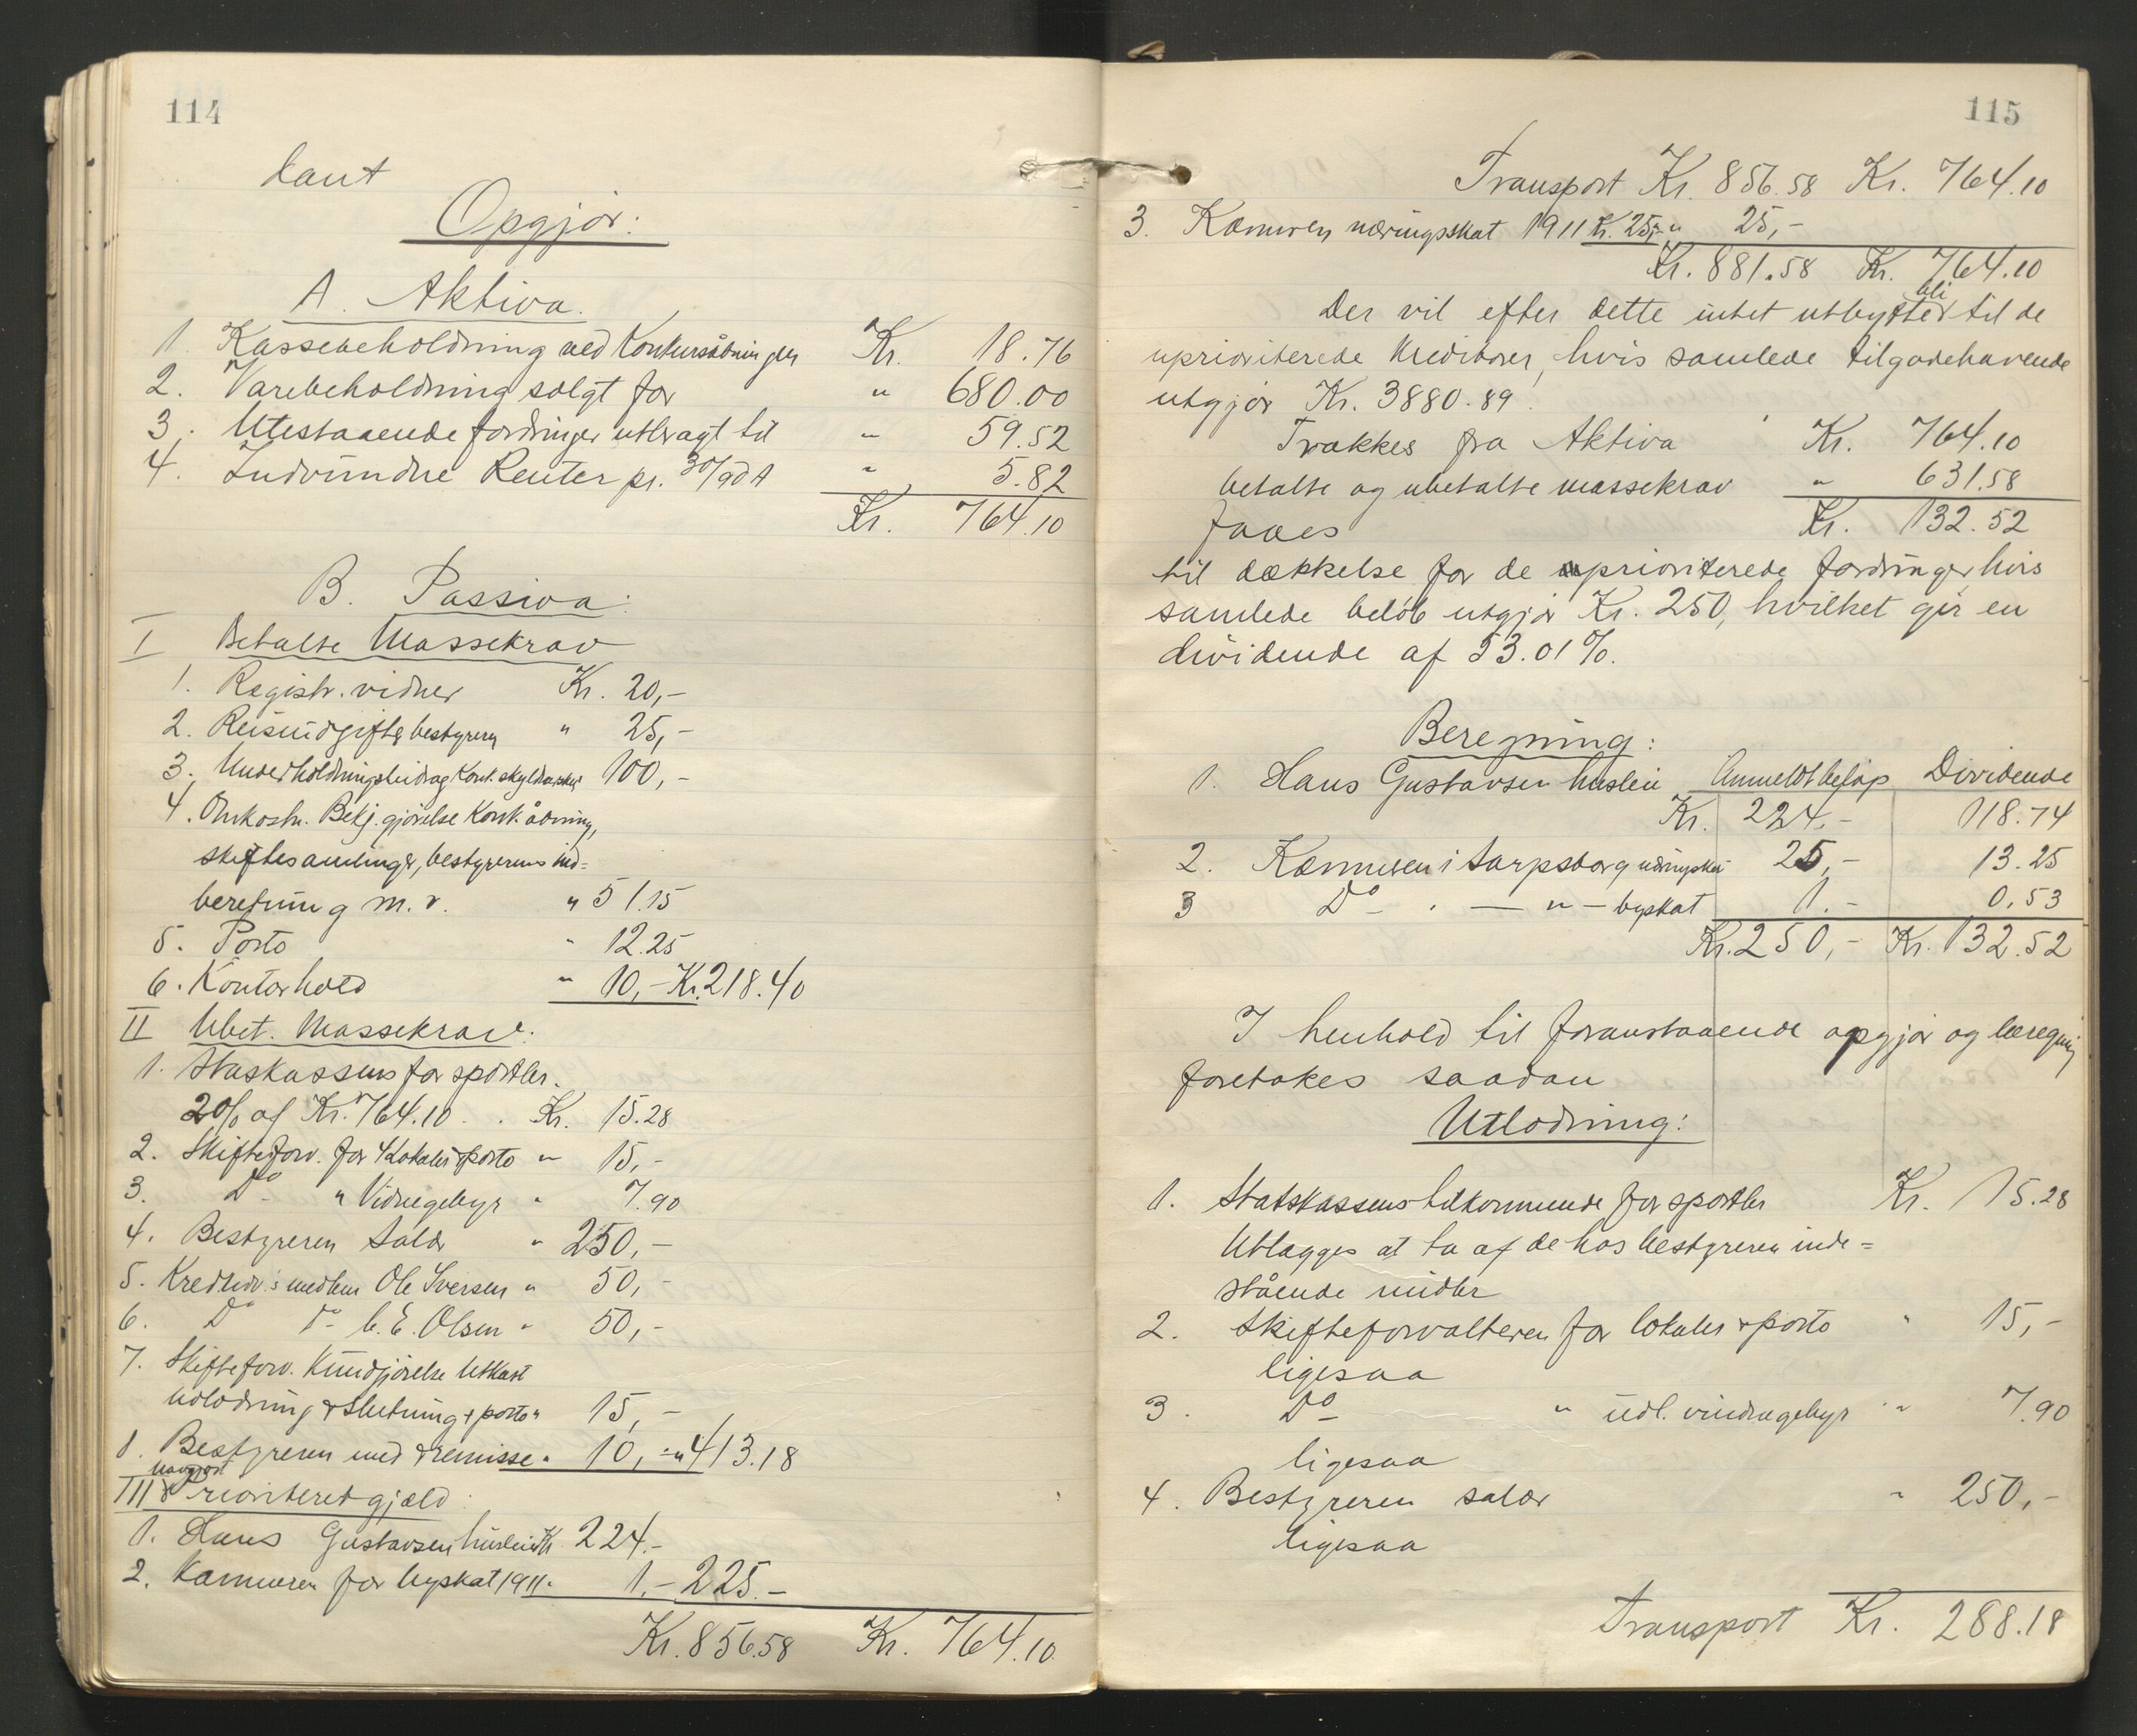 114
Opgjør:
A. Aktiva.
1. Kassebeholdning ved Konkursåbningen Kr. 18.76
2. Varebeholdning solgt for " 680.00
3. Utestaaende fordringer utbragt til " 59.52
4. Indvundne Renter pr. 30/9 d A " 5.82
Kr. 764.10
B. Passiva:
I Betalte Massekrav
1. Registr. vidner Kr. 20,-
2. Reiseudgifter bestyreren " 25,-
3. Underholdningsbidrag Konk. skyldneren 100,-
4. Omkostn. Bekj.gjørelse Konk. åbning,
skiftesamlinger, bestyrerens ind=
beretning m.v. " 51.15
5. Porto " 12.25
6. Kontorhold " 10,- Kr. 218.40
II Ubet. Massekrav:
1. Staskassens for sportler.
2% af Kr. 764.10 . . Kr. 15.28
2. Skifteforv. for Lokaler & porto " 15,-
3. Do " Vidnegebyr " 7.90
4. Bestyreren Salær " 250,-
5. Kredudv's medlem Ole Iversen " 50,-
6. Do Do C. E. Olsen " 50,-
7. Skifteforv. Kundgjørelse Utkast
Udlodning & Slutning & porto " 15,-
8. Bestyreren & remisse " 10,- " 413.18
III Prioriteret gjæld:
1. Hans Gustavsen husleie Kr. 224.-
2. Kæmneren for byskat 1911 " 1.- 225.-
Kr. 856.58 Kr. 764.10
115
Transport Kr. 856.58 Kr. 764.10
3. Kæmneren næringsskat 1911 Kr. 25,- " 25,-
Kr. 881.58 Kr. 764.10
bli
Der vil efter dette intet utbytte til de
uprioriterede Kreditorer, hvis samlede tilgodehavende
utgjør Kr. 3880.89.
Trækkes fra Aktiva Kr. 764.10
betalte og ubetalte massekrav " 631.58
faaes Kr. 132.52
til dækkelse for de prioriterede fordringer hvis
samlede beløb utgjør Kr. 250, hvilket gir en
dividende af 53.01%.
Beregning:
1. Hans Gustavsen husleie Anmeldt beløp Dividende
Kr. 224.- 118.74
2. Kæmneren i Sarpsborg næringsskat 25,- 13.25
3 Do - " - byskat 1.- 0.53
Kr. 250,- Kr. 132.52
I henhold til foranstaaende opgjør og beregning
foretakes saadan
Utlodning:
1. Statskassens tilkommende for sportler Kr. 15.28
Utlægges at ta af de hos bestyreren inde=
stående midler
2. Skifteforvalteren for lokaler & porto " 15,-
ligesaa
3. Do " udl. vidnegebyr " 7.90
ligesaa
4. Bestyreren salær " 250,-
ligesaa
Transport Kr. 288.18